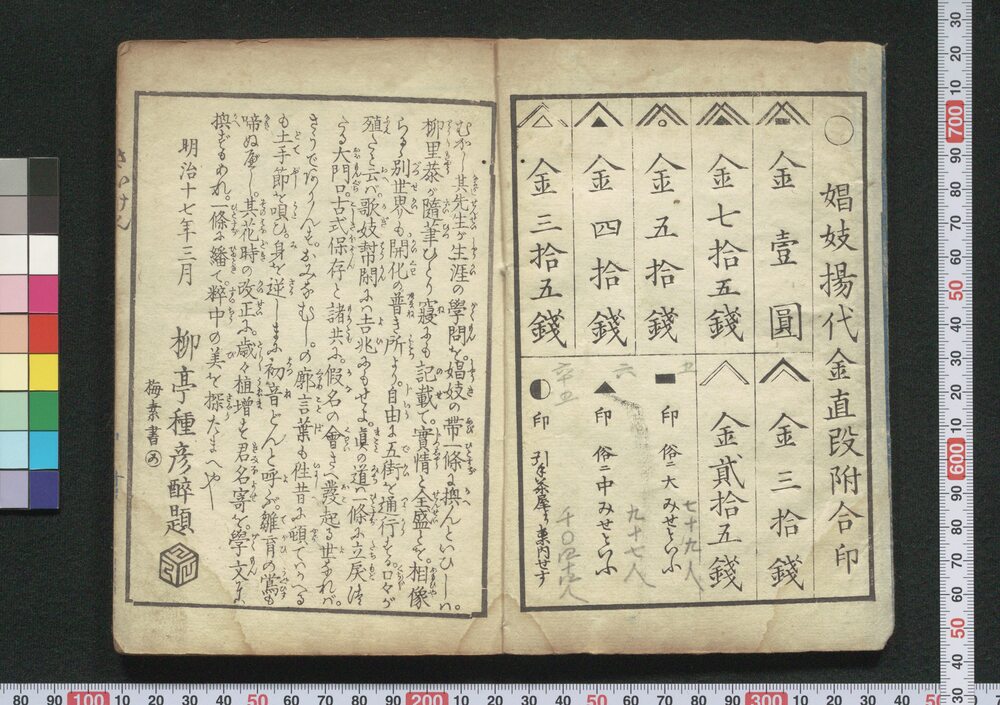 娼妓揚代金直段附合印
金壹圓
金七拾五錢
金五拾錢
金四拾錢
金三拾五錢
金三拾錢
金貳拾五錢
印 俗ニ大みせといふ
印 俗ニ中みせといふ
印 引手茶屋ゟ案内せず
七十九人
九十七人
むかし其先生が生涯の學問を娼妓の帶一條に換んといひしハ。
柳里恭が隨筆ひとり寢にも記載て實情と全盛とを。相像
らるゝ別世界も開化の普き所より。自由に五街を通行する口々が
殖たと云バ歌妓幇間ハ吉兆にもせよ。眞の道ハ一條に立戻つ
たる大門口。古式保存と諸共に假名の會さへ發起る世なれバ。
さうでありんす。おかみなむし。の廓言葉も徃昔に
も土手節を唄ひ。身を逆しまに初音どんと呼ぶ。雛育の鶯も
啼ぬべし。其花時の改正に。歳々植増を君名寄て。學文
換ずもあれ。一條に繙て。粹中の美を探たまへや
明治十七年三月
柳亭種彦醉題
梅素書
さいけん